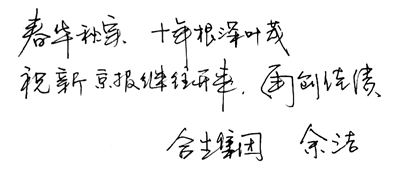 春华秋实 十年根深叶茂
祝新京报继往开来,再创佳绩
合生集团 余洁